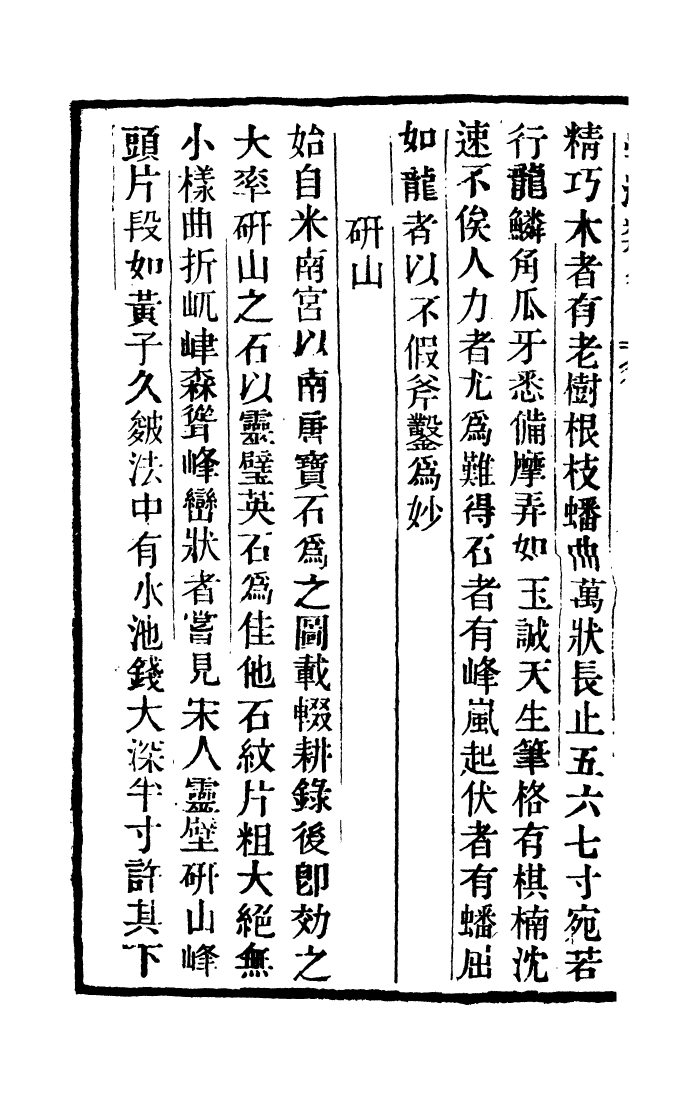 精巧木者有老樹根枝蟠曲萬狀長止五六七寸宛若
行龍鱗角瓜牙悉備摩弄如玉誠天生筆格有棋楠沈
速不俟人力者尤爲難得石者有峰嵐起伏者有蟠屈
如龍者以不假斧鑿爲妙
硏山
始自米南宮以南唐寶石爲之圖載輟耕錄後卽効之
大率硏山之石以靈璧英石爲佳他石紋片粗大絕無
小樣曲折屼嵂森聳峰巒狀者嘗見宋人靈壁硏山峰
頭片段如黃子久皴法中有小池錢大深半寸許其下